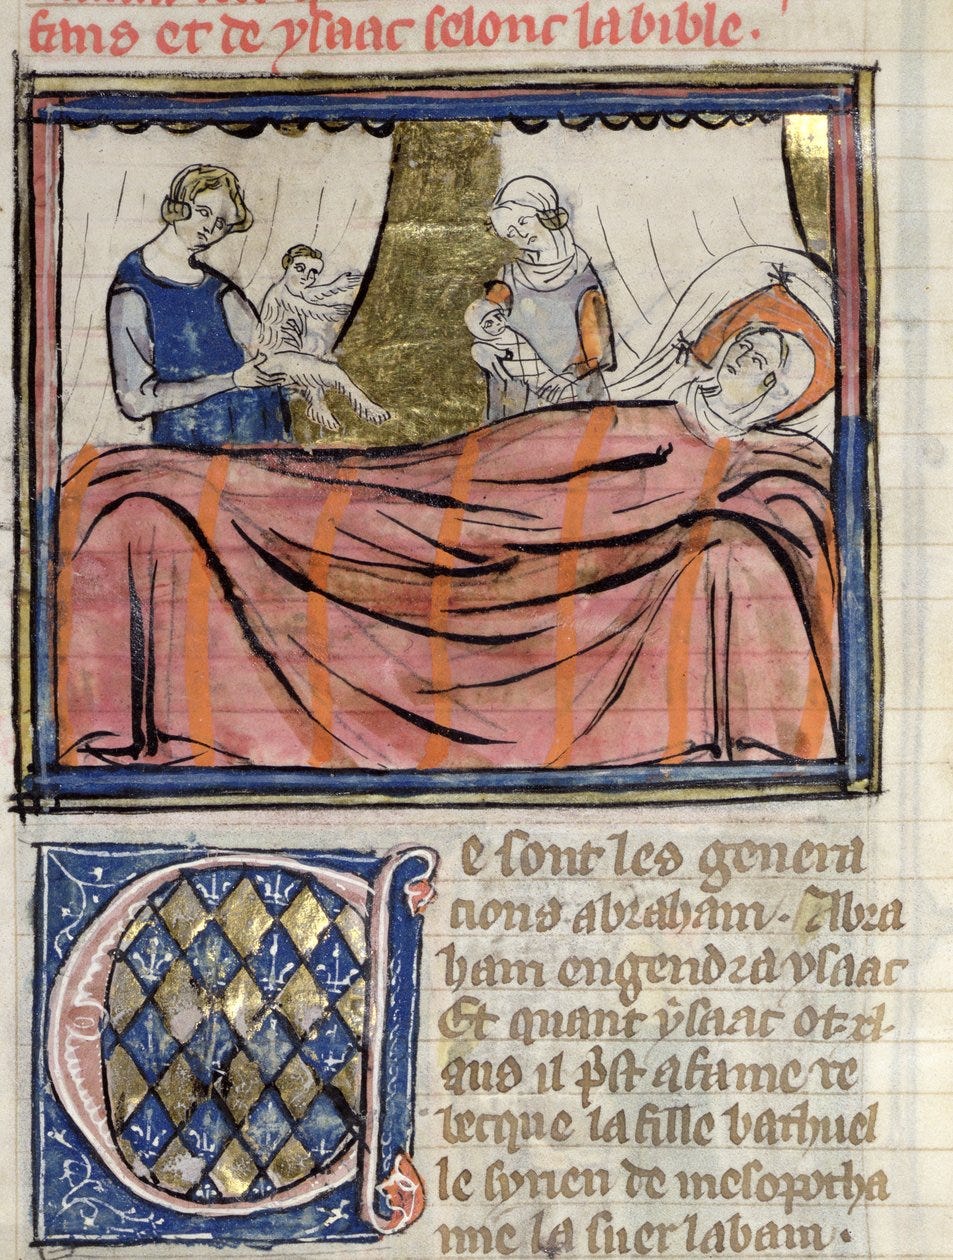 fans et de ysaac selonc la bible.
Ce sont les genera
cions abraham. Abra
ham engendra ysaac
Et quant ysaac ot .xl.
ans il p̃st a fame re
becque la fille bathuel
le syrien de mesopotha
mie la suer labam.